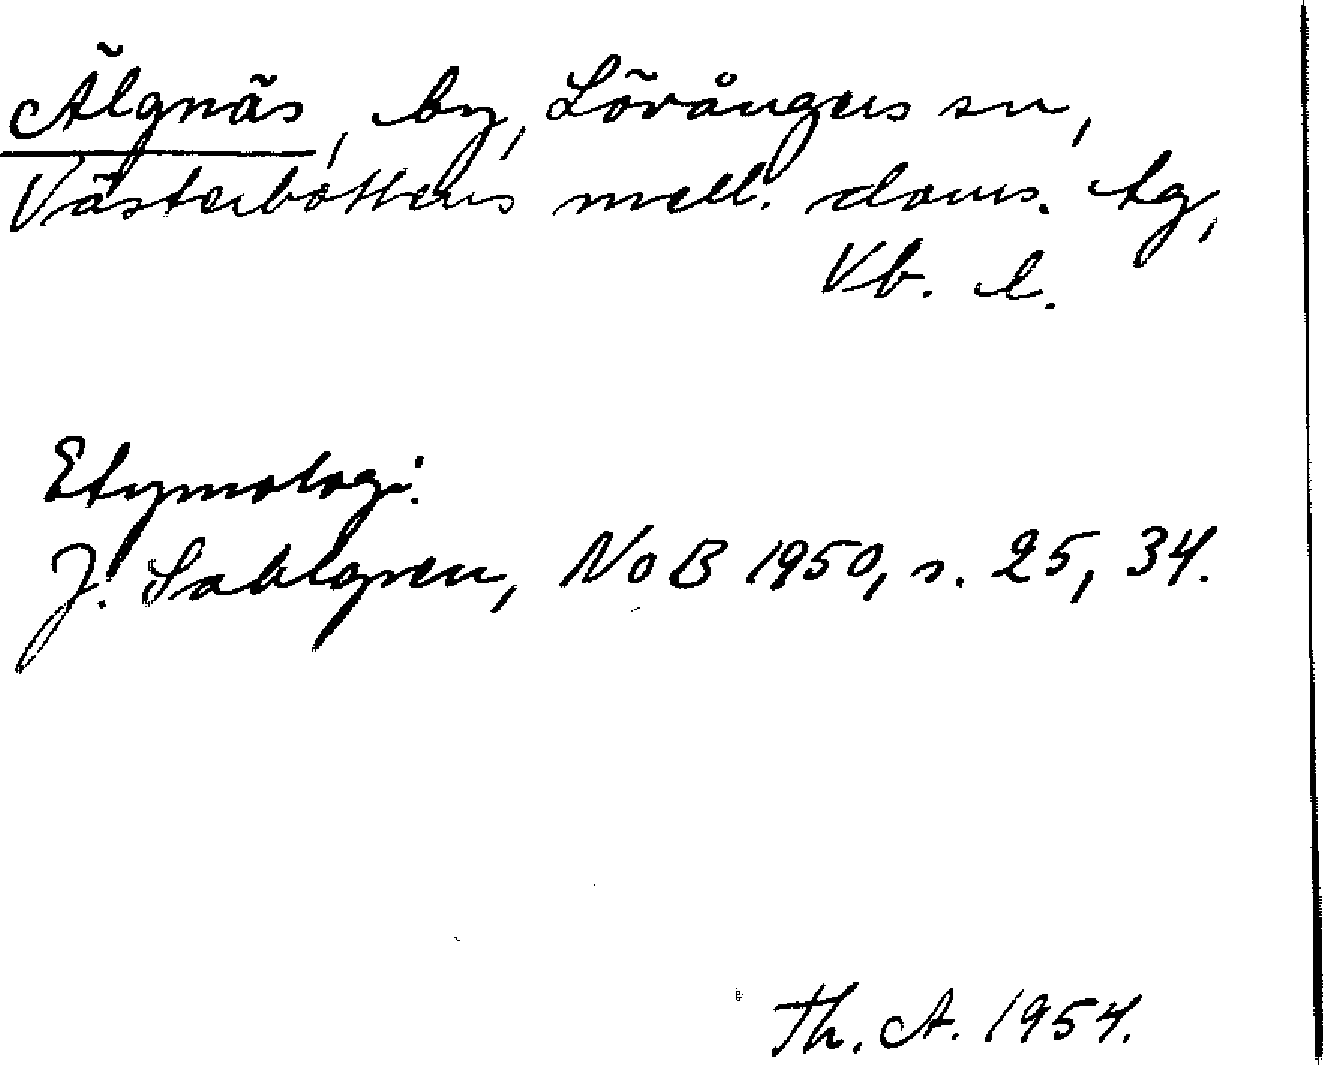 Älgnäs, by, Lövångers sn,
Västerbottens mell. doms. tg,
Vb. l.
Etymologi:
J. Sahlgren, NoB 1950, s. 25, 34.
Th. A. 1954.